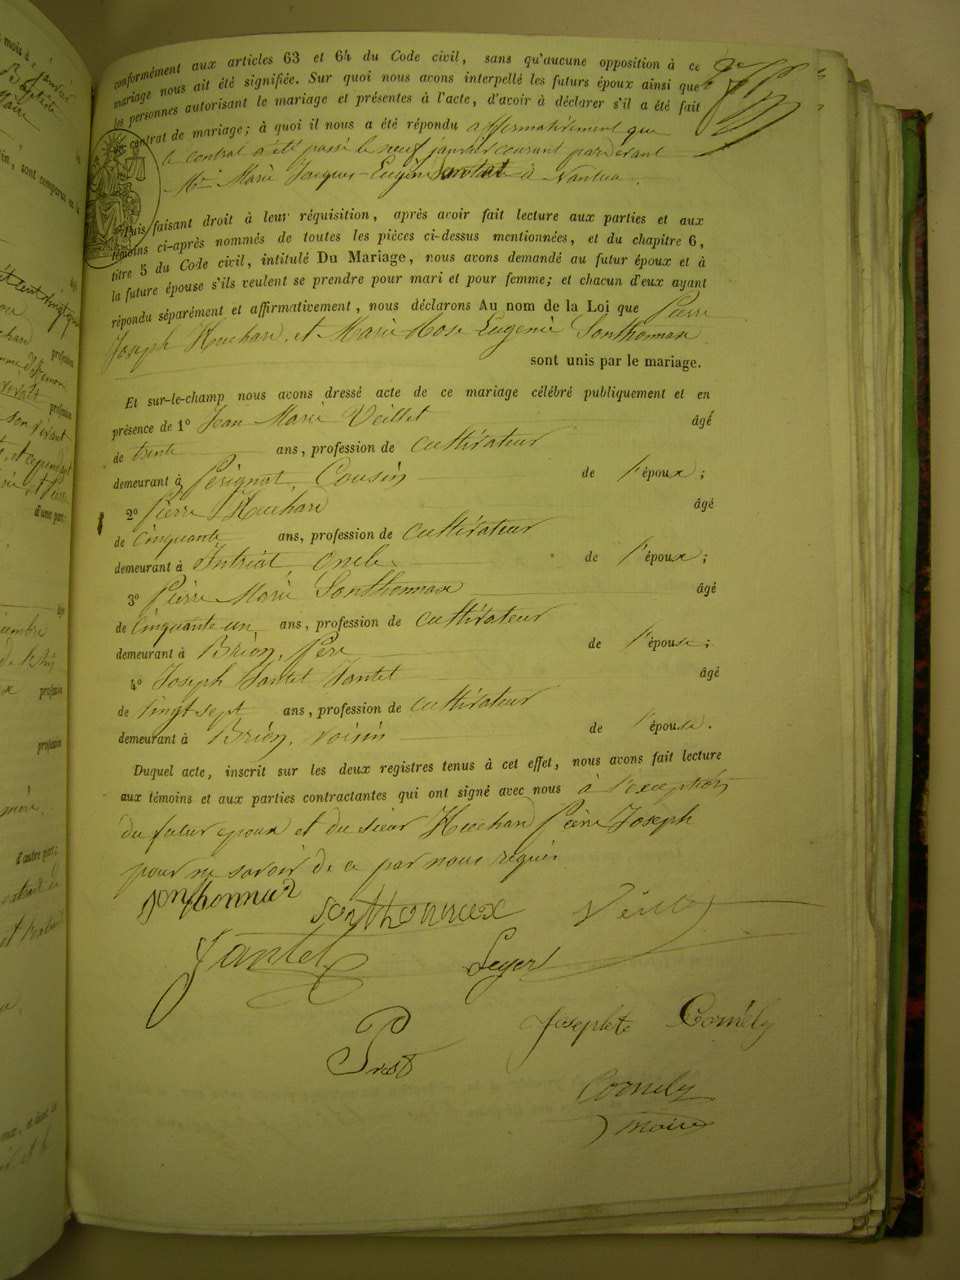 conformément aux articles 63 et 64 du Code civil, sans qu'aucune opposition à ce
mariage nous ait été signifiée. Sur quoi nous avons interpellé les futurs époux ainsi que
les personnes autorisant le mariage et présentes à l'acte, d'avoir à déclarer s'il a été fait
contrat de mariage; à quoi il nous a été répondu affirmativement que
le contrat a été passé le neuf janvier courant par devant
Mtre Marie Jacques-Eugène à Nantua
Puis faisant droit à leur réquisition, après avoir fait lecture aux parties et aux
témoins ci-après nommés de toutes les pièces ci-dessus mentionnées, et du chapitre 6,
titre 5 du Code civil, intitulé Du Mariage, nous avons demandé au futur époux et à
la future épouse s'ils veulent se prendre pour mari et pour femme; et chacun d'eux ayant
répondu séparément et affirmativement, nous déclarons Au nom de la Loi que Pierre
Joseph Huchard, et Marie Rose Eugenie Sonthonnax
sont unis par le mariage.
Et sur-le-champ nous avons dressé acte de ce mariage célébré publiquement et en
présence de 1º Jean Marie Veillet âgé
de trente ans, profession de cultivateur
demeurant à Pérignat, Cousin de l'époux;
2º Pierre Huchard âgé
de Cinquante ans, profession de cultivateur
demeurant à Intriat, oncle de l'époux;
3º Pierre Marie Sonthonnax âgé
de Cinquante un ans, profession de cultivateur
demeurant à Brion, Père de l'épouse;
4º Joseph Jantet Jantet âgé
de vingt sept ans, profession de cultivateur
demeurant à Brion, voisin de l'épouse.
Duquel acte, inscrit sur les deux registres tenus à cet effet, nous avons fait lecture
aux témoins et aux parties contractantes qui ont signé avec nous à l'exception
du futur epoux et du sieur Huchard Pierre Joseph
pour ne savoir de ce par nous requis
Sonthonnax
Sonthonnax
Jantet
Josephte Cornély
Cornély
maire